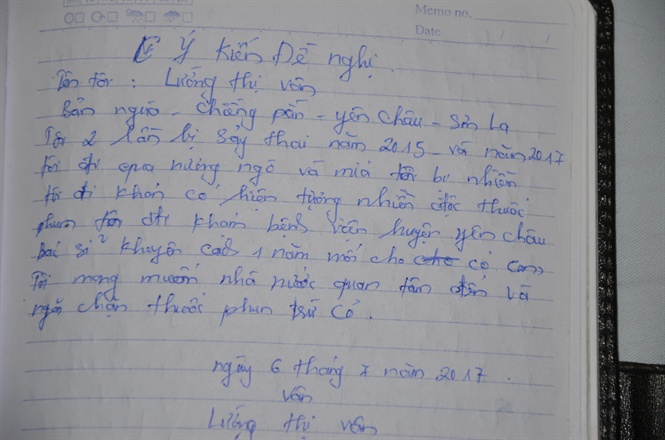 Memo no.
Date / /
Ý kiến Đề nghị.
Tên tôi : Lường thị vân
Bản nguò - chiềng pằn - yên châu - sơn la
Tôi 2 lần bị sảy thai năm 2015 - và năm 2017
tôi đi qua nương ngô và mía tôi bị nhiễm
tôi đi khám có hiện tượng nhiễn độc thuốc
phun tôi đi khám bệnh viên huyện yên châu
Bác sĩ khuyên cách 1 năm mới cho có con
Tôi mong muốn nhà nước quan tâm đến và
ngăn chặn thuốc phun trừ cỏ.
ngày 6 tháng 7 năm 2017.
vân
Lường thị vân